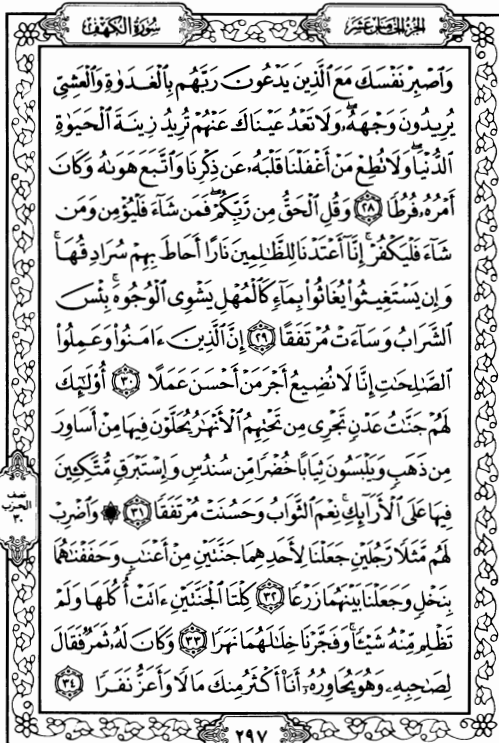 الجزء الخامس عشر
سورة الكهف
وَٱصۡبِرۡ نَفۡسَكَ مَعَ ٱلَّذِينَ يَدۡعُونَ رَبَّهُم بِٱلۡغَدَوٰةِ وَٱلۡعَشِيِّ
يُرِيدُونَ وَجۡهَهُۥۖ وَلَا تَعۡدُ عَيۡنَاكَ عَنۡهُمۡ تُرِيدُ زِينَةَ ٱلۡحَيَوٰةِ
ٱلدُّنۡيَاۖ وَلَا تُطِعۡ مَنۡ أَغۡفَلۡنَا قَلۡبَهُۥ عَن ذِكۡرِنَا وَٱتَّبَعَ هَوَىٰهُ وَكَانَ
أَمۡرُهُۥ فُرُطٗا ٢٨ وَقُلِ ٱلۡحَقُّ مِن رَّبِّكُمۡۖ فَمَن شَآءَ فَلۡيُؤۡمِن وَمَن
شَآءَ فَلۡيَكۡفُرۡۚ إِنَّآ أَعۡتَدۡنَا لِلظَّٰلِمِينَ نَارًا أَحَاطَ بِهِمۡ سُرَادِقُهَاۚ
وَإِن يَسۡتَغِيثُواْ يُغَاثُواْ بِمَآءٖ كَٱلۡمُهۡلِ يَشۡوِي ٱلۡوُجُوهَۚ بِئۡسَ
ٱلشَّرَابُ وَسَآءَتۡ مُرۡتَفَقًا ٢٩ إِنَّ ٱلَّذِينَ ءَامَنُواْ وَعَمِلُواْ
ٱلصَّٰلِحَٰتِ إِنَّا لَا نُضِيعُ أَجۡرَ مَنۡ أَحۡسَنَ عَمَلًا ٣٠ أُوْلَٰٓئِكَ
لَهُمۡ جَنَّٰتُ عَدۡنٖ تَجۡرِي مِن تَحۡتِهِمُ ٱلۡأَنۡهَٰرُ يُحَلَّوۡنَ فِيهَا مِنۡ أَسَاوِرَ
مِن ذَهَبٖ وَيَلۡبَسُونَ ثِيَابًا خُضۡرٗا مِّن سُندُسٖ وَإِسۡتَبۡرَقٖ مُّتَّكِـِٔينَ
فِيهَا عَلَى ٱلۡأَرَآئِكِۚ نِعۡمَ ٱلثَّوَابُ وَحَسُنَتۡ مُرۡتَفَقٗا ٣١ ۞ وَٱضۡرِبۡ
لَهُم مَّثَلٗا رَّجُلَيۡنِ جَعَلۡنَا لِأَحَدِهِمَا جَنَّتَيۡنِ مِنۡ أَعۡنَٰبٖ وَحَفَفۡنَٰهُمَا
بِنَخۡلٖ وَجَعَلۡنَا بَيۡنَهُمَا زَرۡعٗا ٣٢ كِلۡتَا ٱلۡجَنَّتَيۡنِ ءَاتَتۡ أُكُلَهَا وَلَمۡ
تَظۡلِم مِّنۡهُ شَيۡـٔٗاۚ وَفَجَّرۡنَا خِلَٰلَهُمَا نَهَرٗا ٣٣ وَكَانَ لَهُۥ ثَمَرٞ فَقَالَ
لِصَٰحِبِهِۦ وَهُوَ يُحَاوِرُهُۥٓ أَنَا۠ أَكۡثَرُ مِنكَ مَالٗا وَأَعَزُّ نَفَرٗا ٣٤
نصف
الحزب
٣٠
٢٩٧